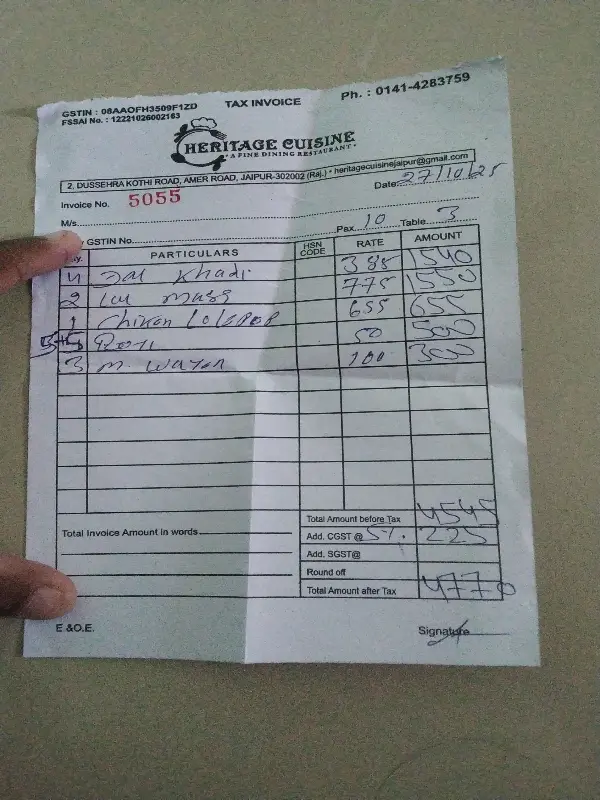 GSTIN : 08AAOFH3509F1ZD TAX INVOICE Ph. : 0141-4283759
FSSAI No. : 12221026002163
HERITAGE CUISINE
• A FINE DINING RESTAURANT •
2, DUSSEHRA KOTHI ROAD, AMER ROAD, JAIPUR-302002 (Raj.) • heritagecuisinejaipur@gmail.com
Invoice No. 5055 Date: 27/10/25
M/s. Pax. 10 Table. 3
GSTIN No.
PARTICULARS HSN CODE RATE AMOUNT
4 Khadi 385 1540
2 Lal mass 775 1550
1 Chiken Lolepop 655 655
5+5 Roti 50 500
3 M. Water 100 300
Total Amount before Tax 4545
Total Invoice Amount in words Add. CGST @ 5%. 225
Add. SGST@
Round off
Total Amount after Tax 4770
E &O.E. Signature